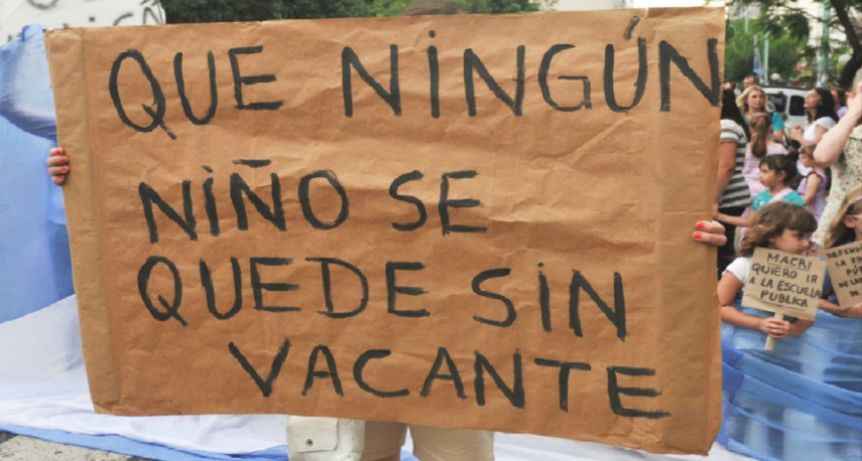 QUE NINGÚN
NIÑO SE
QUEDE SIN
VACANTE
MACRI
QUIERO IR
A LA ESCUELA
PUBLICA